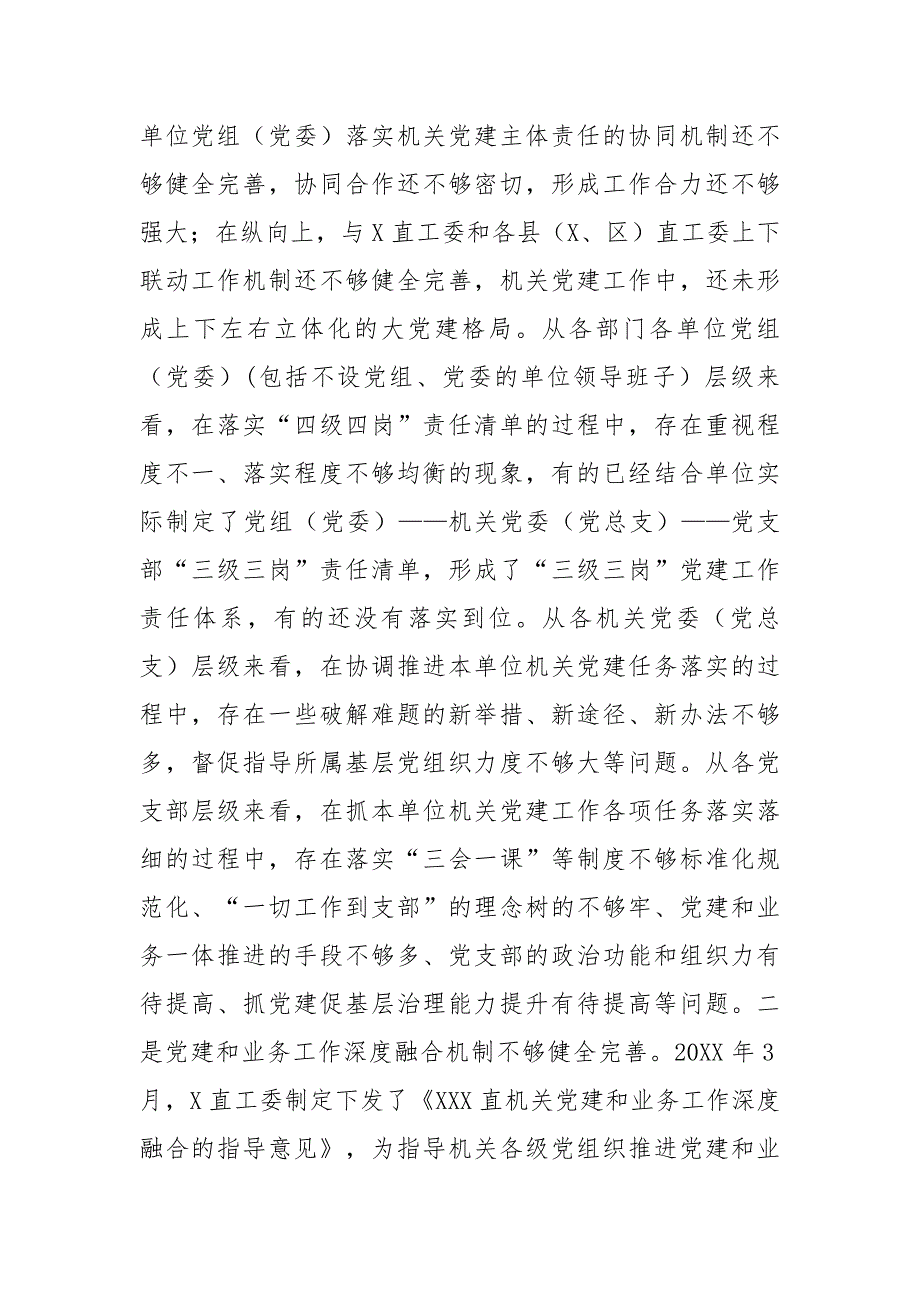 单位党组（党委）落实机关党建主体责任的协同机制还不
够健全完善，协同合作还不够密切，形成工作合力还不够
强大；在纵向上，与X直工委和各县（X、区）直工委上下
联动工作机制还不够健全完善，机关党建工作中，还未形
成上下左右立体化的大党建格局。从各部门各单位党组
（党委）(包括不设党组、党委的单位领导班子）层级来
看，在落实“四级四岗”责任清单的过程中，存在重视程
度不一、落实程度不够均衡的现象，有的已经结合单位实
际制定了党组（党委）——机关党委（党总支）——党支
部“三级三岗”责任清单，形成了“三级三岗”党建工作
责任体系，有的还没有落实到位。从各机关党委（党总
支）层级来看，在协调推进本单位机关党建任务落实的过
程中，存在一些破解难题的新举措、新途径、新办法不够
多，督促指导所属基层党组织力度不够大等问题。从各党
支部层级来看，在抓本单位机关党建工作各项任务落实落
细的过程中，存在落实“三会一课”等制度不够标准化规
范化、“一切工作到支部”的理念树的不够牢、党建和业
务一体推进的手段不够多、党支部的政治功能和组织力有
待提高、抓党建促基层治理能力提升有待提高等问题。二
是党建和业务工作深度融合机制不够健全完善。20XX年3
月，X直工委制定下发了《XXX直机关党建和业务工作深度
融合的指导意见》，为指导机关各级党组织推进党建和业